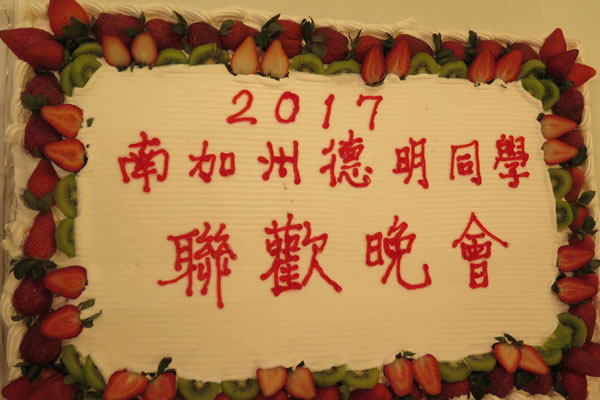 2017
南加州德明同學
聯歡晚會